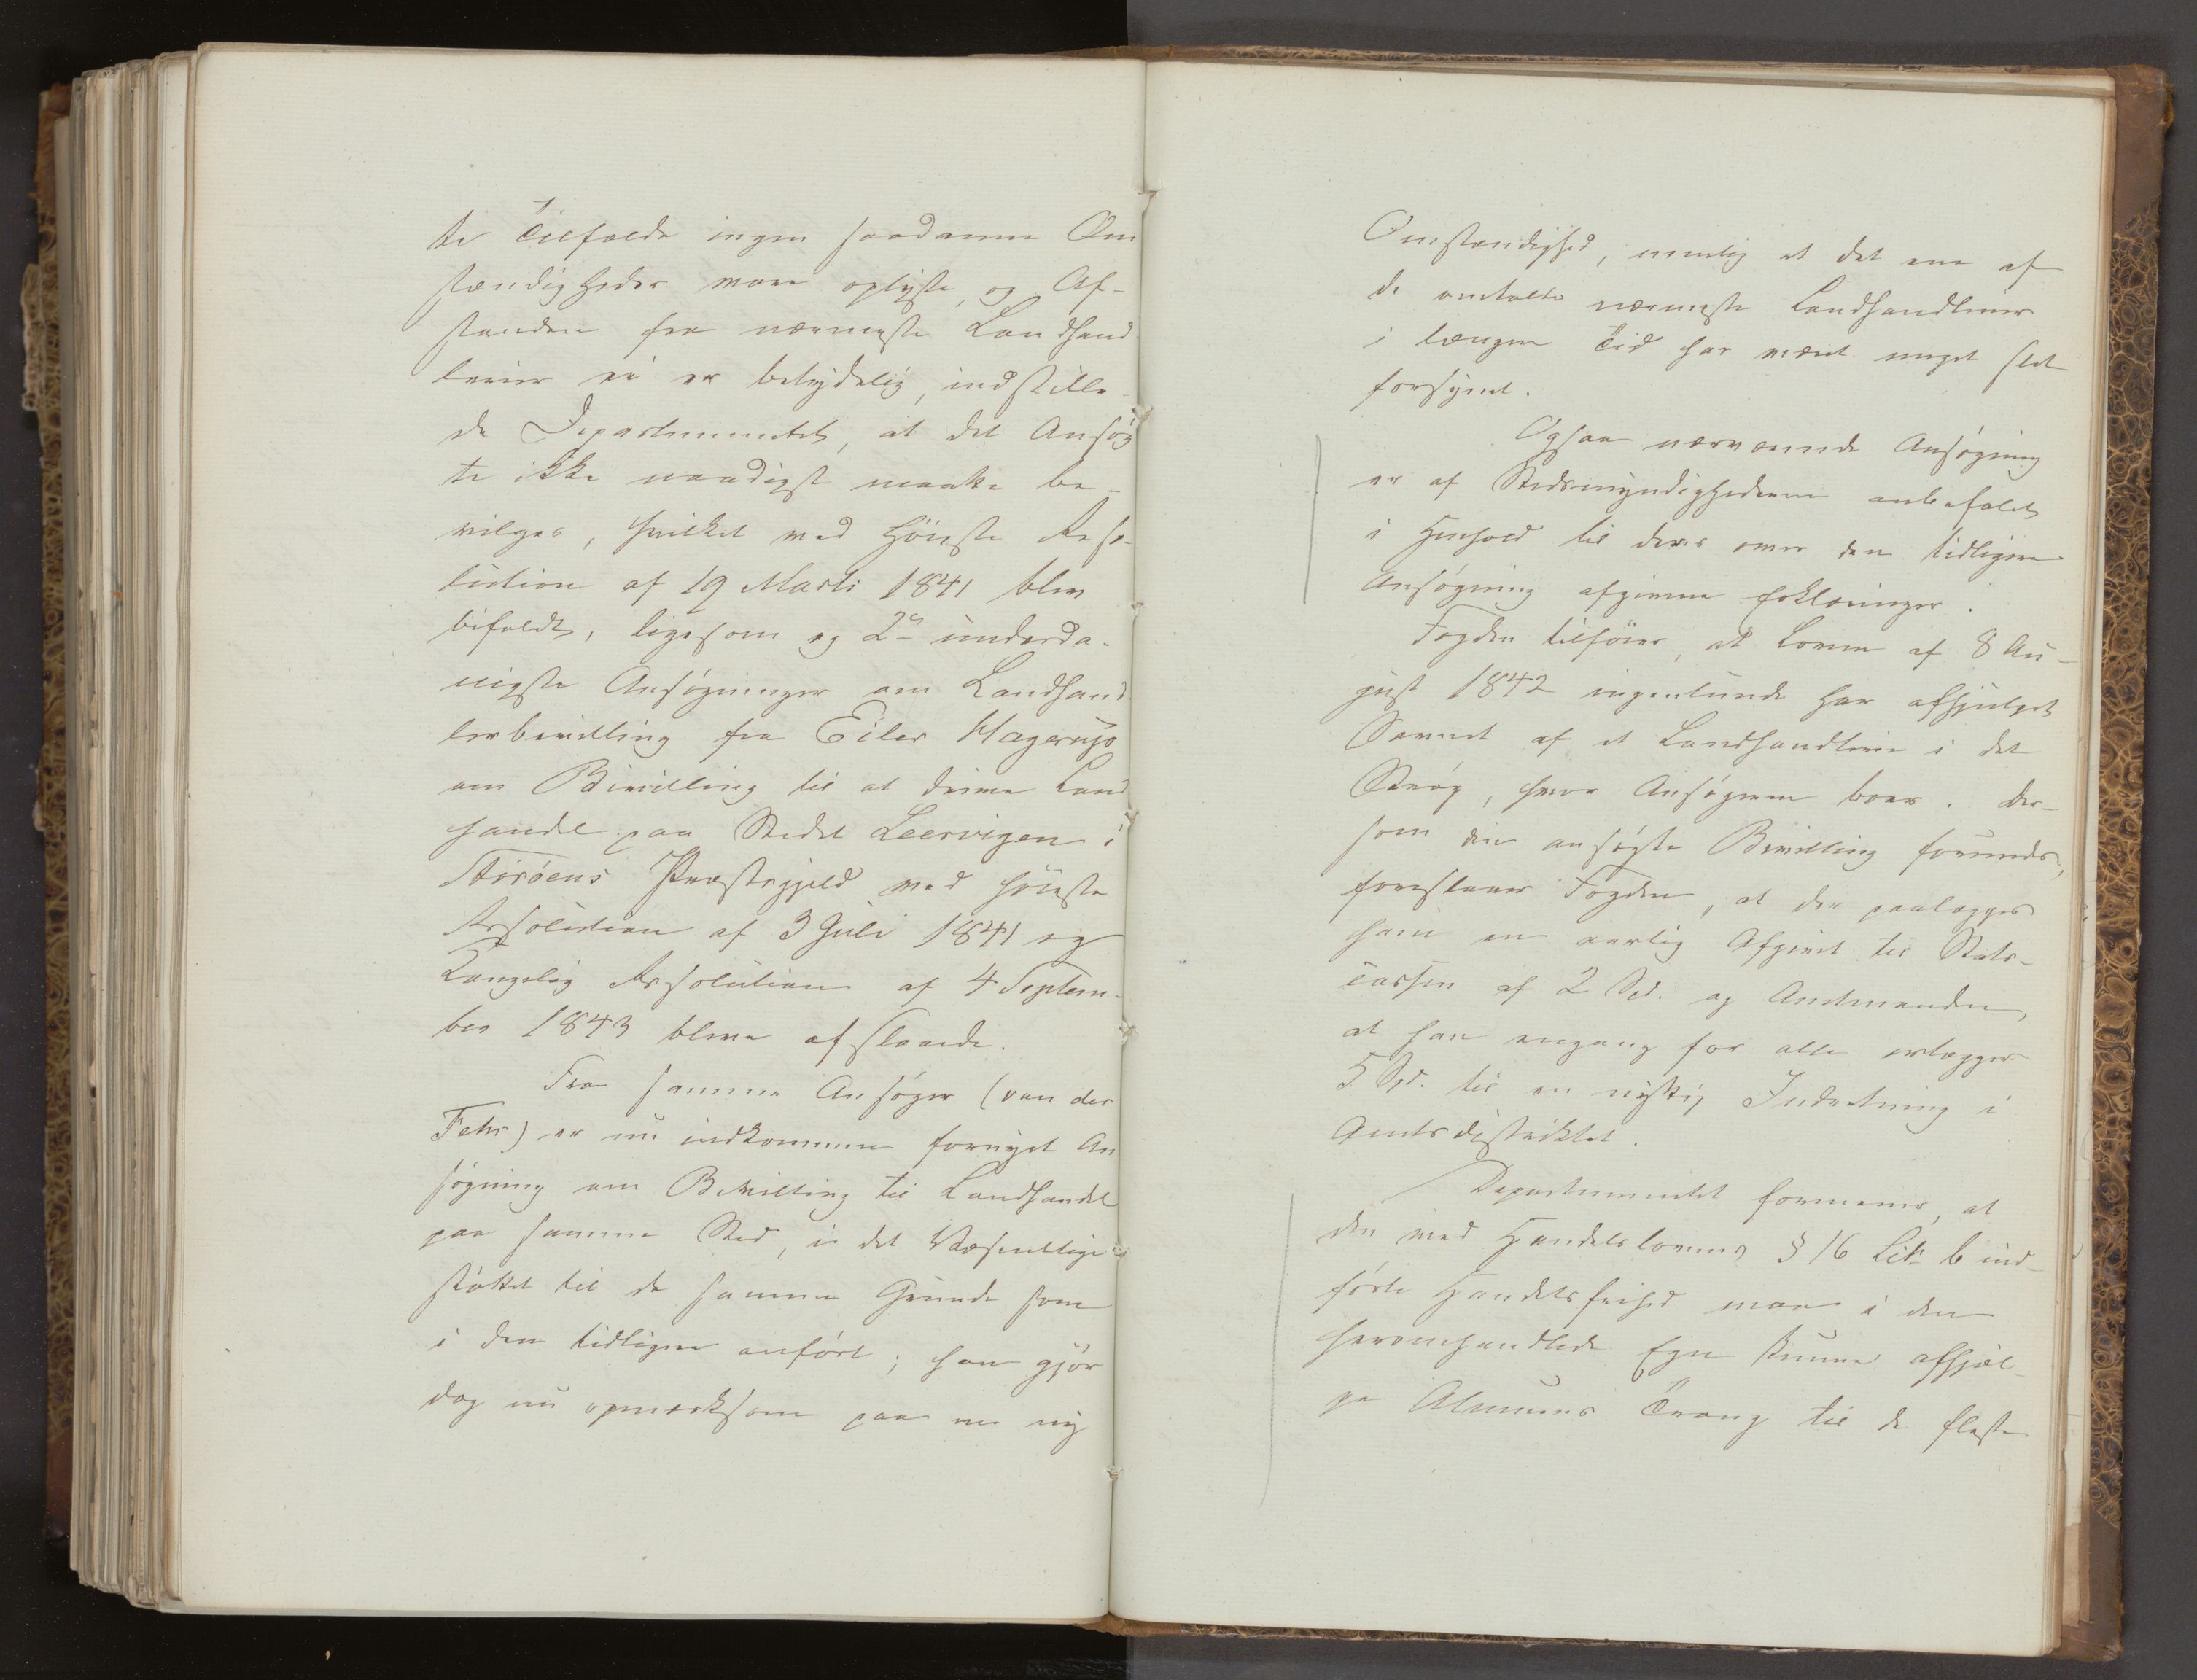 te Tilfælde ingen saadanne Om
stændigheder vare oplyste, og Af-
standen fra nærmeste Landhand
lerier ei er betydelig, indstille-
de Departementet, at det Ansøg
te ikke naadigst maatte be-
vilges, hvilket ved Høieste Reso-
lution af 19 Marts 1841 blev
bifaldt, ligesom og 2de underda-
nigste Ansøgninger om Landhand
lerbevilling fra Eiler Hagerup
om Bevilling til at drive Land
handel paa Stedet Leervigen i
Storöens Præstegjeld ved Høieste
Resolution af 3 Juli 1841 og
Kongelig Resolution af 4 Septem-
ber 1843 bleve afslaaede.
Fra samme Ansøger (van der
Fehr) er nu indkommen fornyet An
søgning om Bevilling til Landhandel
paa samme Sted, i det Væsentlige
støttet til de samme Grunde som
i den tidligere anført; han gjør
dog nu opmærksom paa en ny
Omstændighed, nemlig at det ene af
de omtalte nærmeste Landhandlerier
i længere Tid har været meget slet
forsynet.
Ogsaa nærværende Ansøgning
er af Stedsmyndighederne anbefalet
i Henhold til deres over den tidligere
Ansøgning afgivne Erklæringer.
Fogden tilføier, at Loven af 8 Au-
gust 1842 ingenlunde har afhjulpet
Savnet af et Landhandleri i det
Strøg, hvor Ansøgeren boer. Der-
som den ansøgte Bevilling forundes,
foreslaaer Fogden, at der paalægges
ham en aarlig Afgivt til Stats-
cassen af 2 Spd. og Amtmanden,
at han engang for alle erlægger
5 Spd. til en nyttig Indretning i
Amtsdistriktet.
Departementet formener, at
den ved Handelslovens § 16 Litr b ind-
førte Handelsfrihed maa i den
heromhandlede Egn kunne afhjæl-
pe Almuens Trang til de fleste